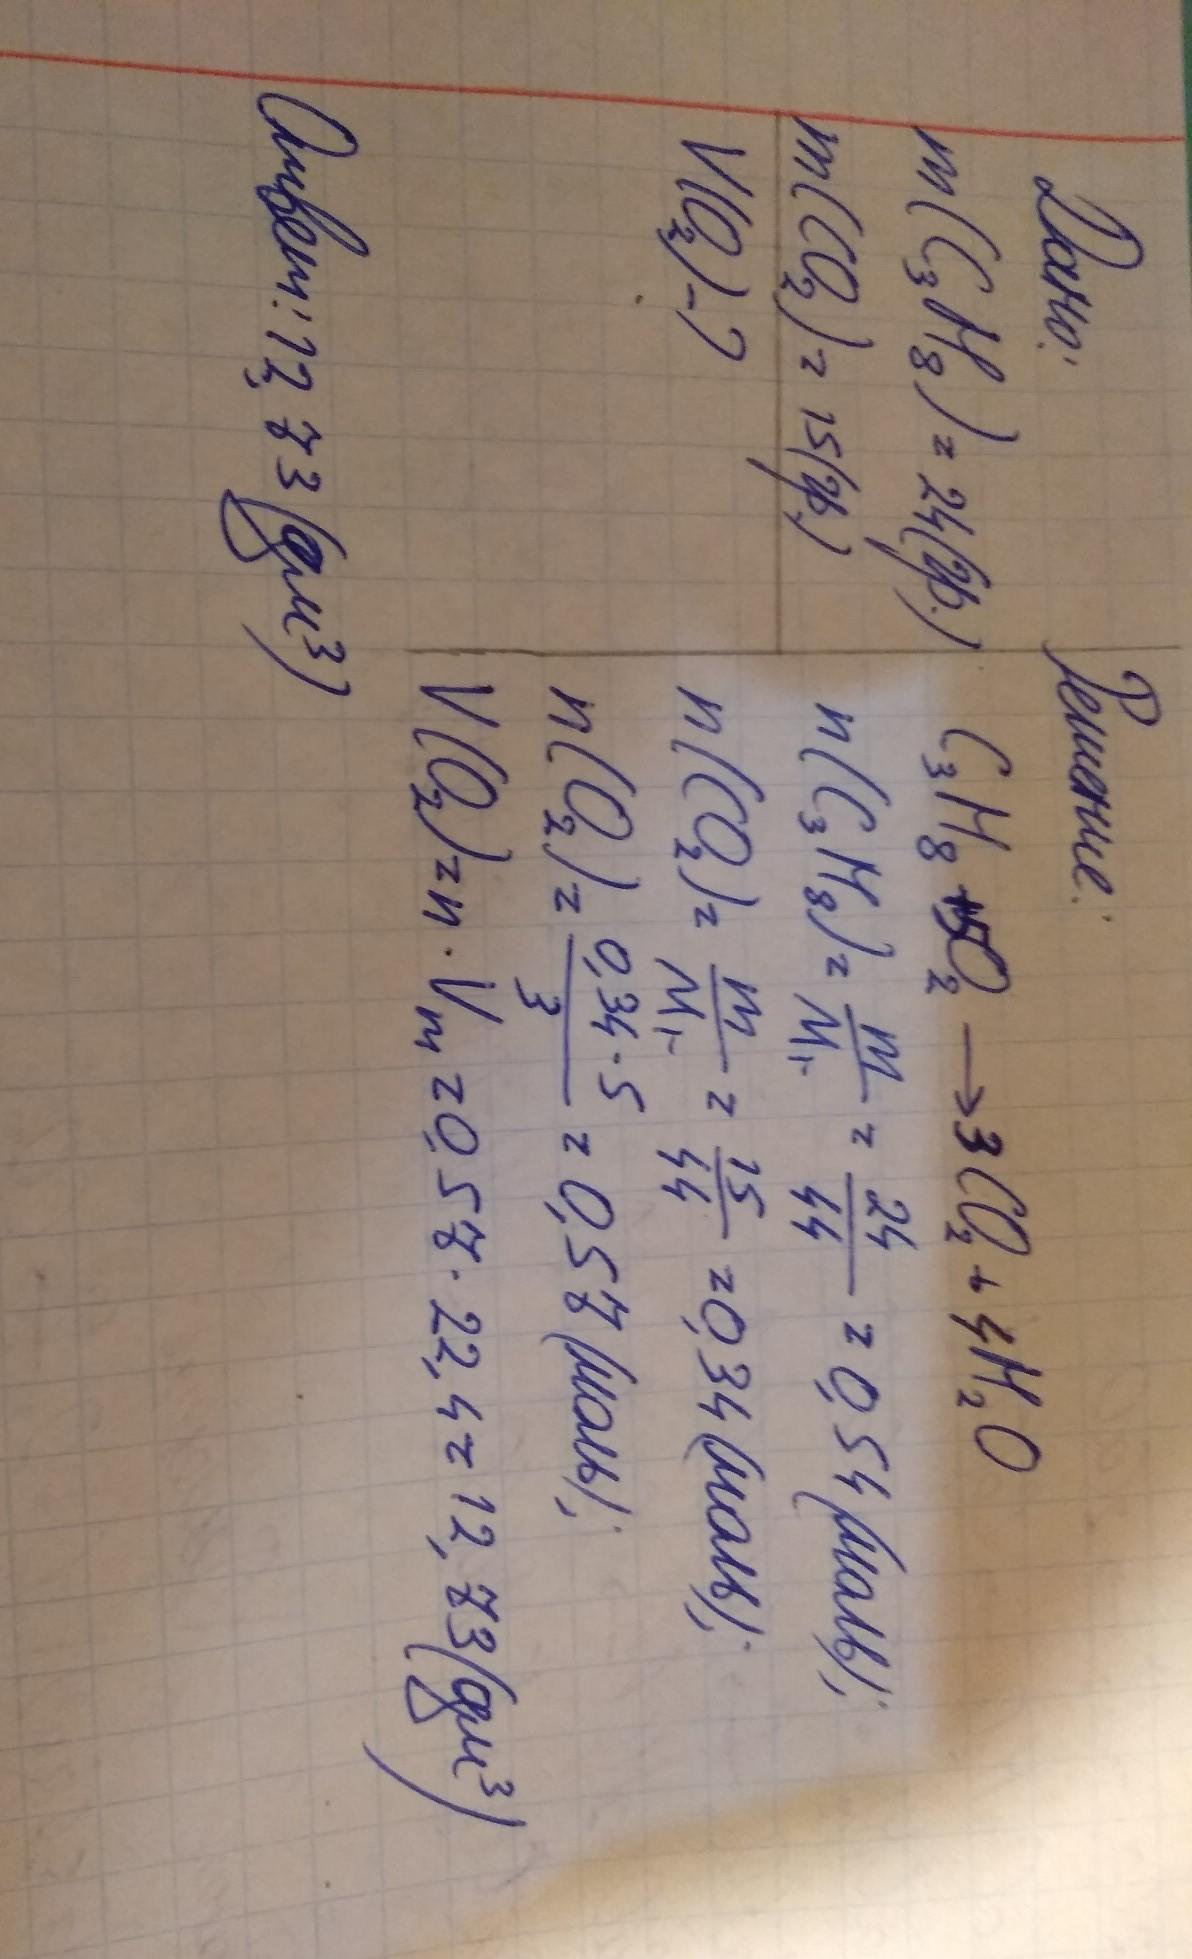 Дано:
m(C₃H₈)=24(гр.)
m(CO₂)=15(гр.)
V(O₂)-?
Решение:
C₃H₈+5O₂→3CO₂+4H₂O
n(C₃H₈)=m/Mr=24/44=0,54(моль);
n(CO₂)=m/Mr=15/44=0,34(моль);
n(O₂)=0,34·5/3=0,57(моль);
V(O₂)=n·Vm=0,57·22,4=12,73(дм³)
Ответ:12,73(дм³)